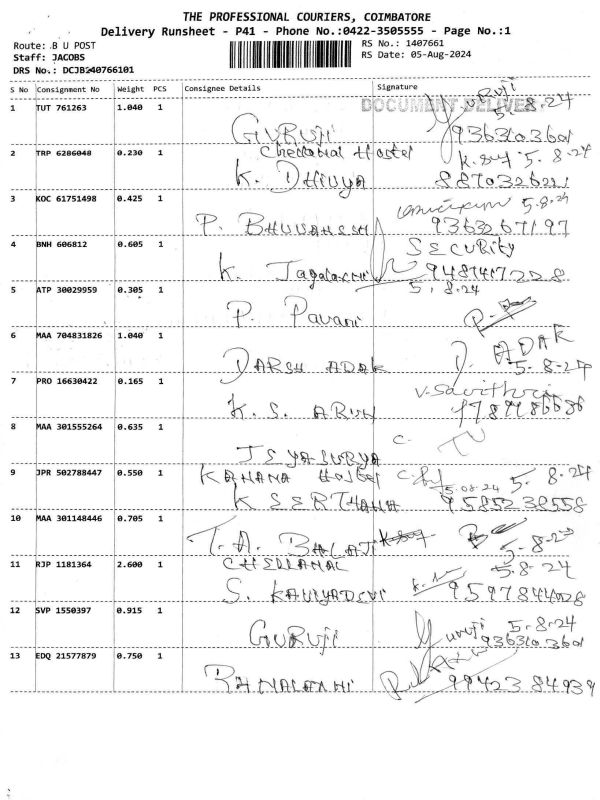 THE PROFESSIONAL COURIERS, COIMBATORE
Delivery Runsheet - P41 - Phone No.:0422-3505555 - Page No.:1
Route: B U POST
RS No.: 1407661
Staff: JACOBS
RS Date: 05-Aug-2024
DRS No.: DCJB240766101
S No Consignment No Weight PCS Consignee Details Signature
DOCUMENT DELIVER
1 TUT 761263 1.040 1 5.8.24
GURUJI 9363103601
2 TRP 6286048 0.230 1 Chellamal Hostel 5.8.24
K. DHIVYA
3 KOC 61751498 0.425 1 5.8.24
P. 9363267197
4 BNH 606812 0.605 1 SECURITY
K.
5.8.24
5 ATP 30029959 0.305 1
P. Pavani
6 MAA 704831826 1.040 1 D. ADAK
DARSH ADAK 5-8-24
7 PRO 16630422 0.165 1 V. Savithri
K. S. ARUN
8 MAA 301555264 0.635 1
JEYASURYA
9 JPR 502788447 0.550 1 Hostel 5.8.24
15.08.24
K SEERTHANA 9585238558
10 MAA 301148446 0.705 1
T. A. BALAJI
11 RJP 1181364 2.600 1 CHELLAMAL 5.8.24
S. KAVIYADEVI 9597844028
12 SVP 1550397 0.915 1 Guruji 5.8.24
GURUJI 9363103601
13 EDQ 21577879 0.750 1
9942384939